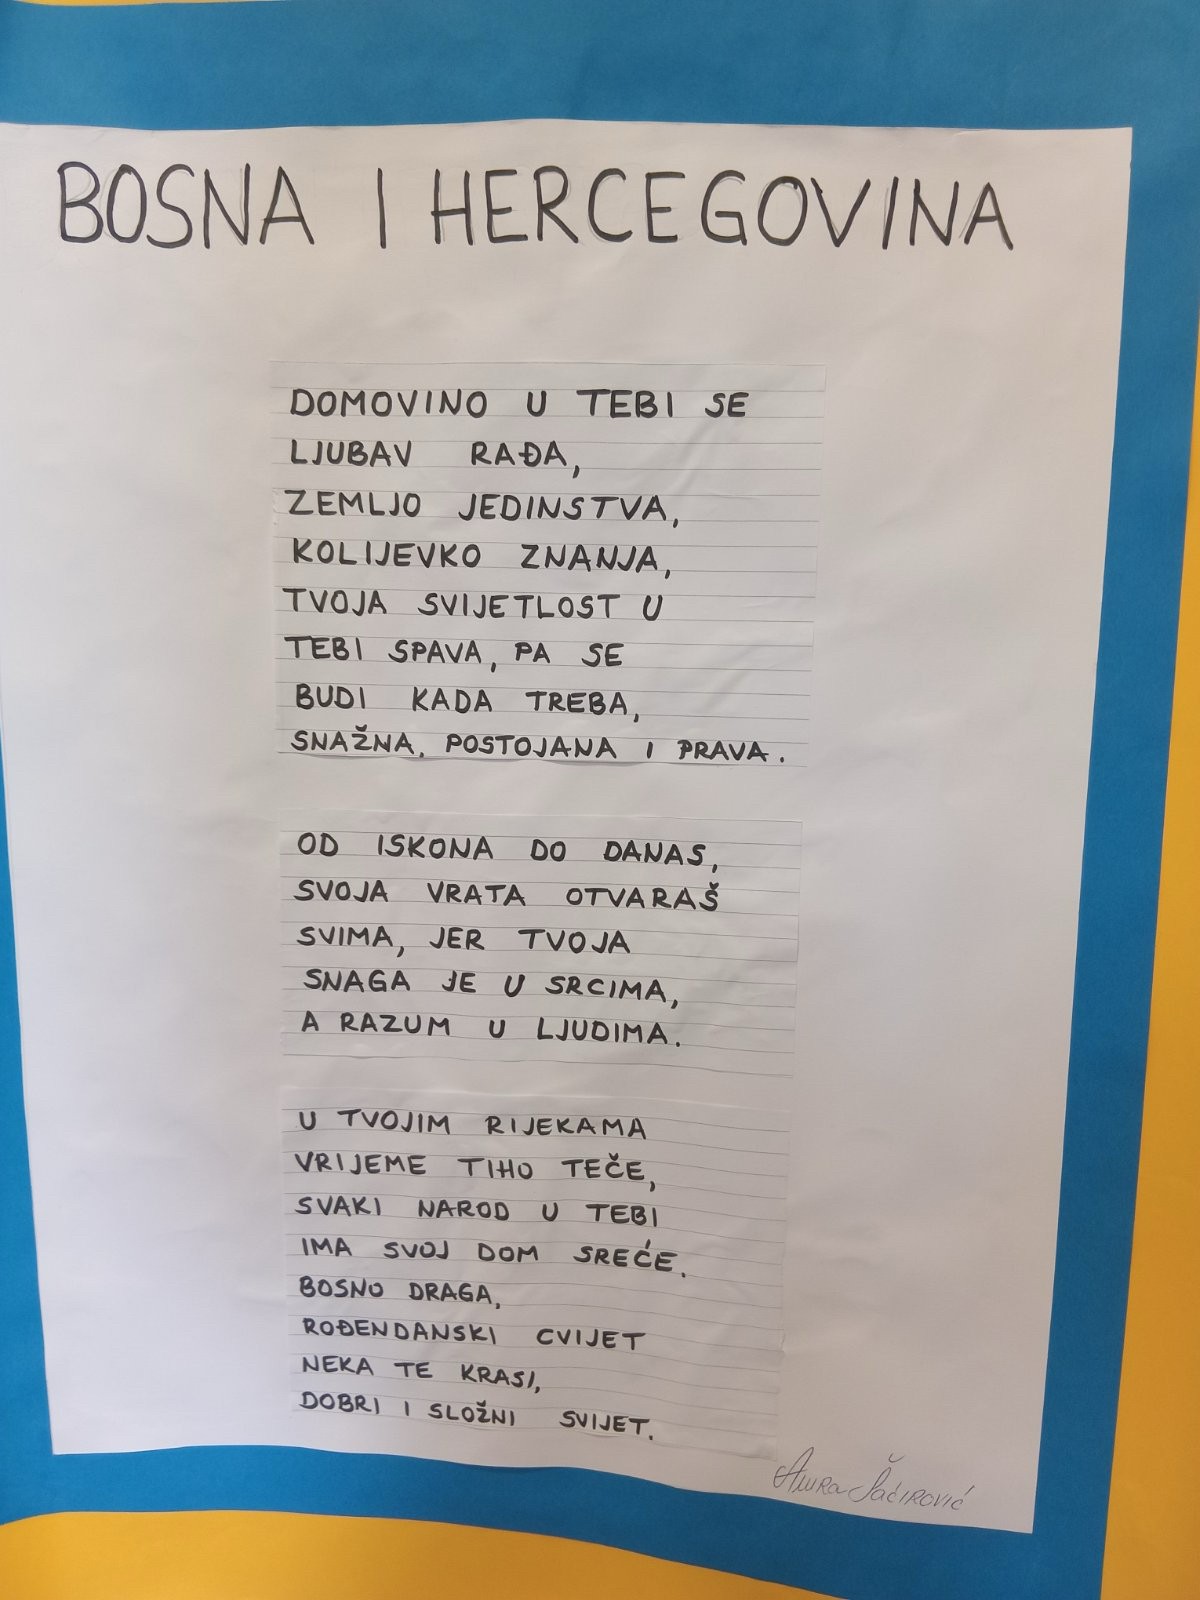 BOSNA I HERCEGOVINA
DOMOVINO U TEBI SE
LJUBAV RAĐA,
ZEMLJO JEDINSTVA,
KOLIJEVKO ZNANJA,
TVOJA SVIJETLOST U
TEBI SPAVA, PA SE
BUDI KADA TREBA,
SNAŽNA, POSTOJANA I PRAVA.
OD ISKONA DO DANAS,
SVOJA VRATA OTVARAŠ
SVIMA, JER TVOJA
SNAGA JE U SRCIMA,
A RAZUM U LJUDIMA.
U TVOJIM RIJEKAMA
VRIJEME TIHO TEČE,
SVAKI NAROD U TEBI
IMA SVOJ DOM SREĆE.
BOSNO DRAGA,
ROĐENDANSKI CVIJET
NEKA TE KRASI,
DOBRI I SLOŽNI SVIJET.
Šaćirović